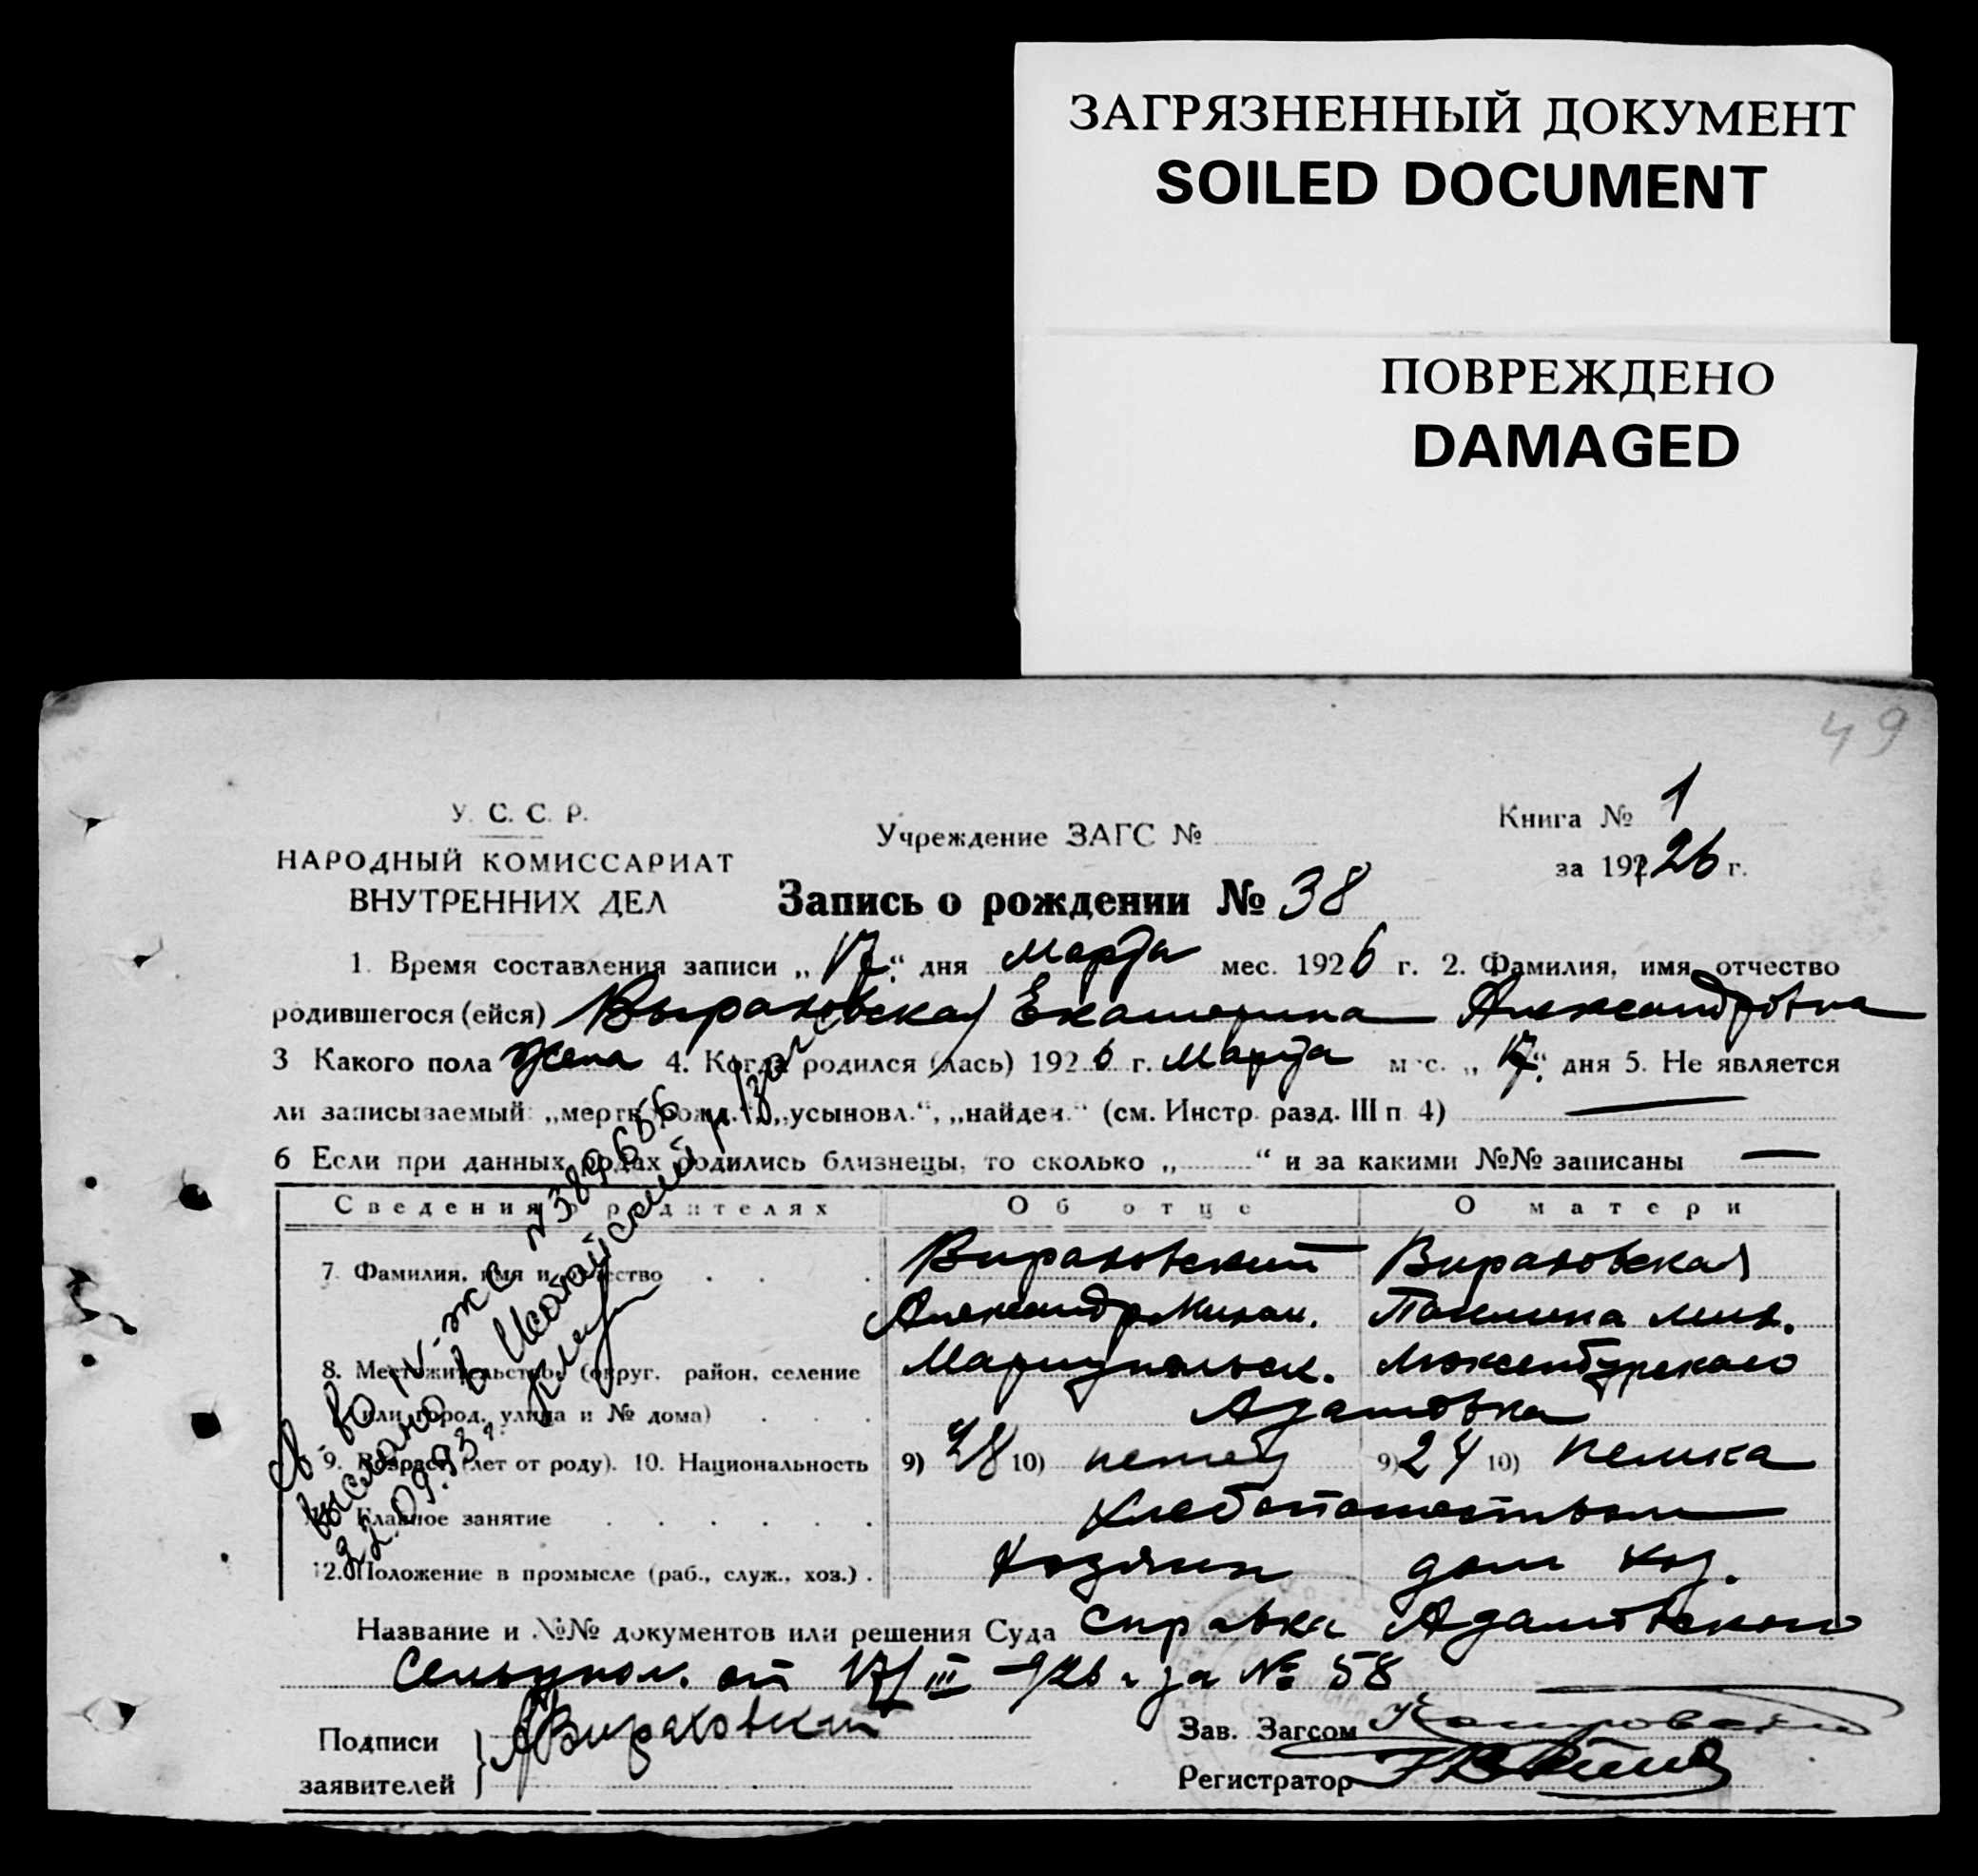 ЗАГРЯЗНЕННЫЙ ДОКУМЕНТ
SOILED DOCUMENT
ПОВРЕЖДЕНО
DAMAGED
49
У. С. С. Р.
НАРОДНЫЙ КОМИССАРИАТ
ВНУТРЕННИХ ДЕЛ
Учреждение ЗАГС №
Книга № 1
за 192 26 г.
Запись о рождении № 38
1. Время составления записи „17“ дня Марта мес. 1926 г. 2. Фамилия, имя, отчество
родившегося (ейся) Выраховская Екатерина Александровна
3 Какого пола Жена 4. Когда родился (лась) 1926 г. Марта мес. „17“ дня 5. Не является
ли записываемый: „мертворожд.“, „усыновл.“, „найден.“ (см. Инстр. разд. III п 4) —
6 Если при данных родах родились близнецы, то сколько „......“ и за какими №№ записаны —
Сведения о родителях Об отце О матери
7. Фамилия, имя и отчество Вираховский Вираховская
Александр Михаи. Паулина мих.
8. Местожительство (округ. район, селение Мариупольск. Люксембургского
или город, улица и № дома) Адамовка
9. Возраст (лет от роду). 10. Национальность 9) 28 10) немец 9) 24 10) немка
Главное занятие Хлебопашеством
12. Положение в промысле (раб., служ., хоз.) Хозяин дом хоз.
Название и №№ документов или решения Суда справка Адамовского
от 17/III-926 г за № 58
Подписи заявителей } АВираховский
Зав. Загсом
Регистратор
Св-во IV-ЖС №389656
выслано в
22.09.93г.